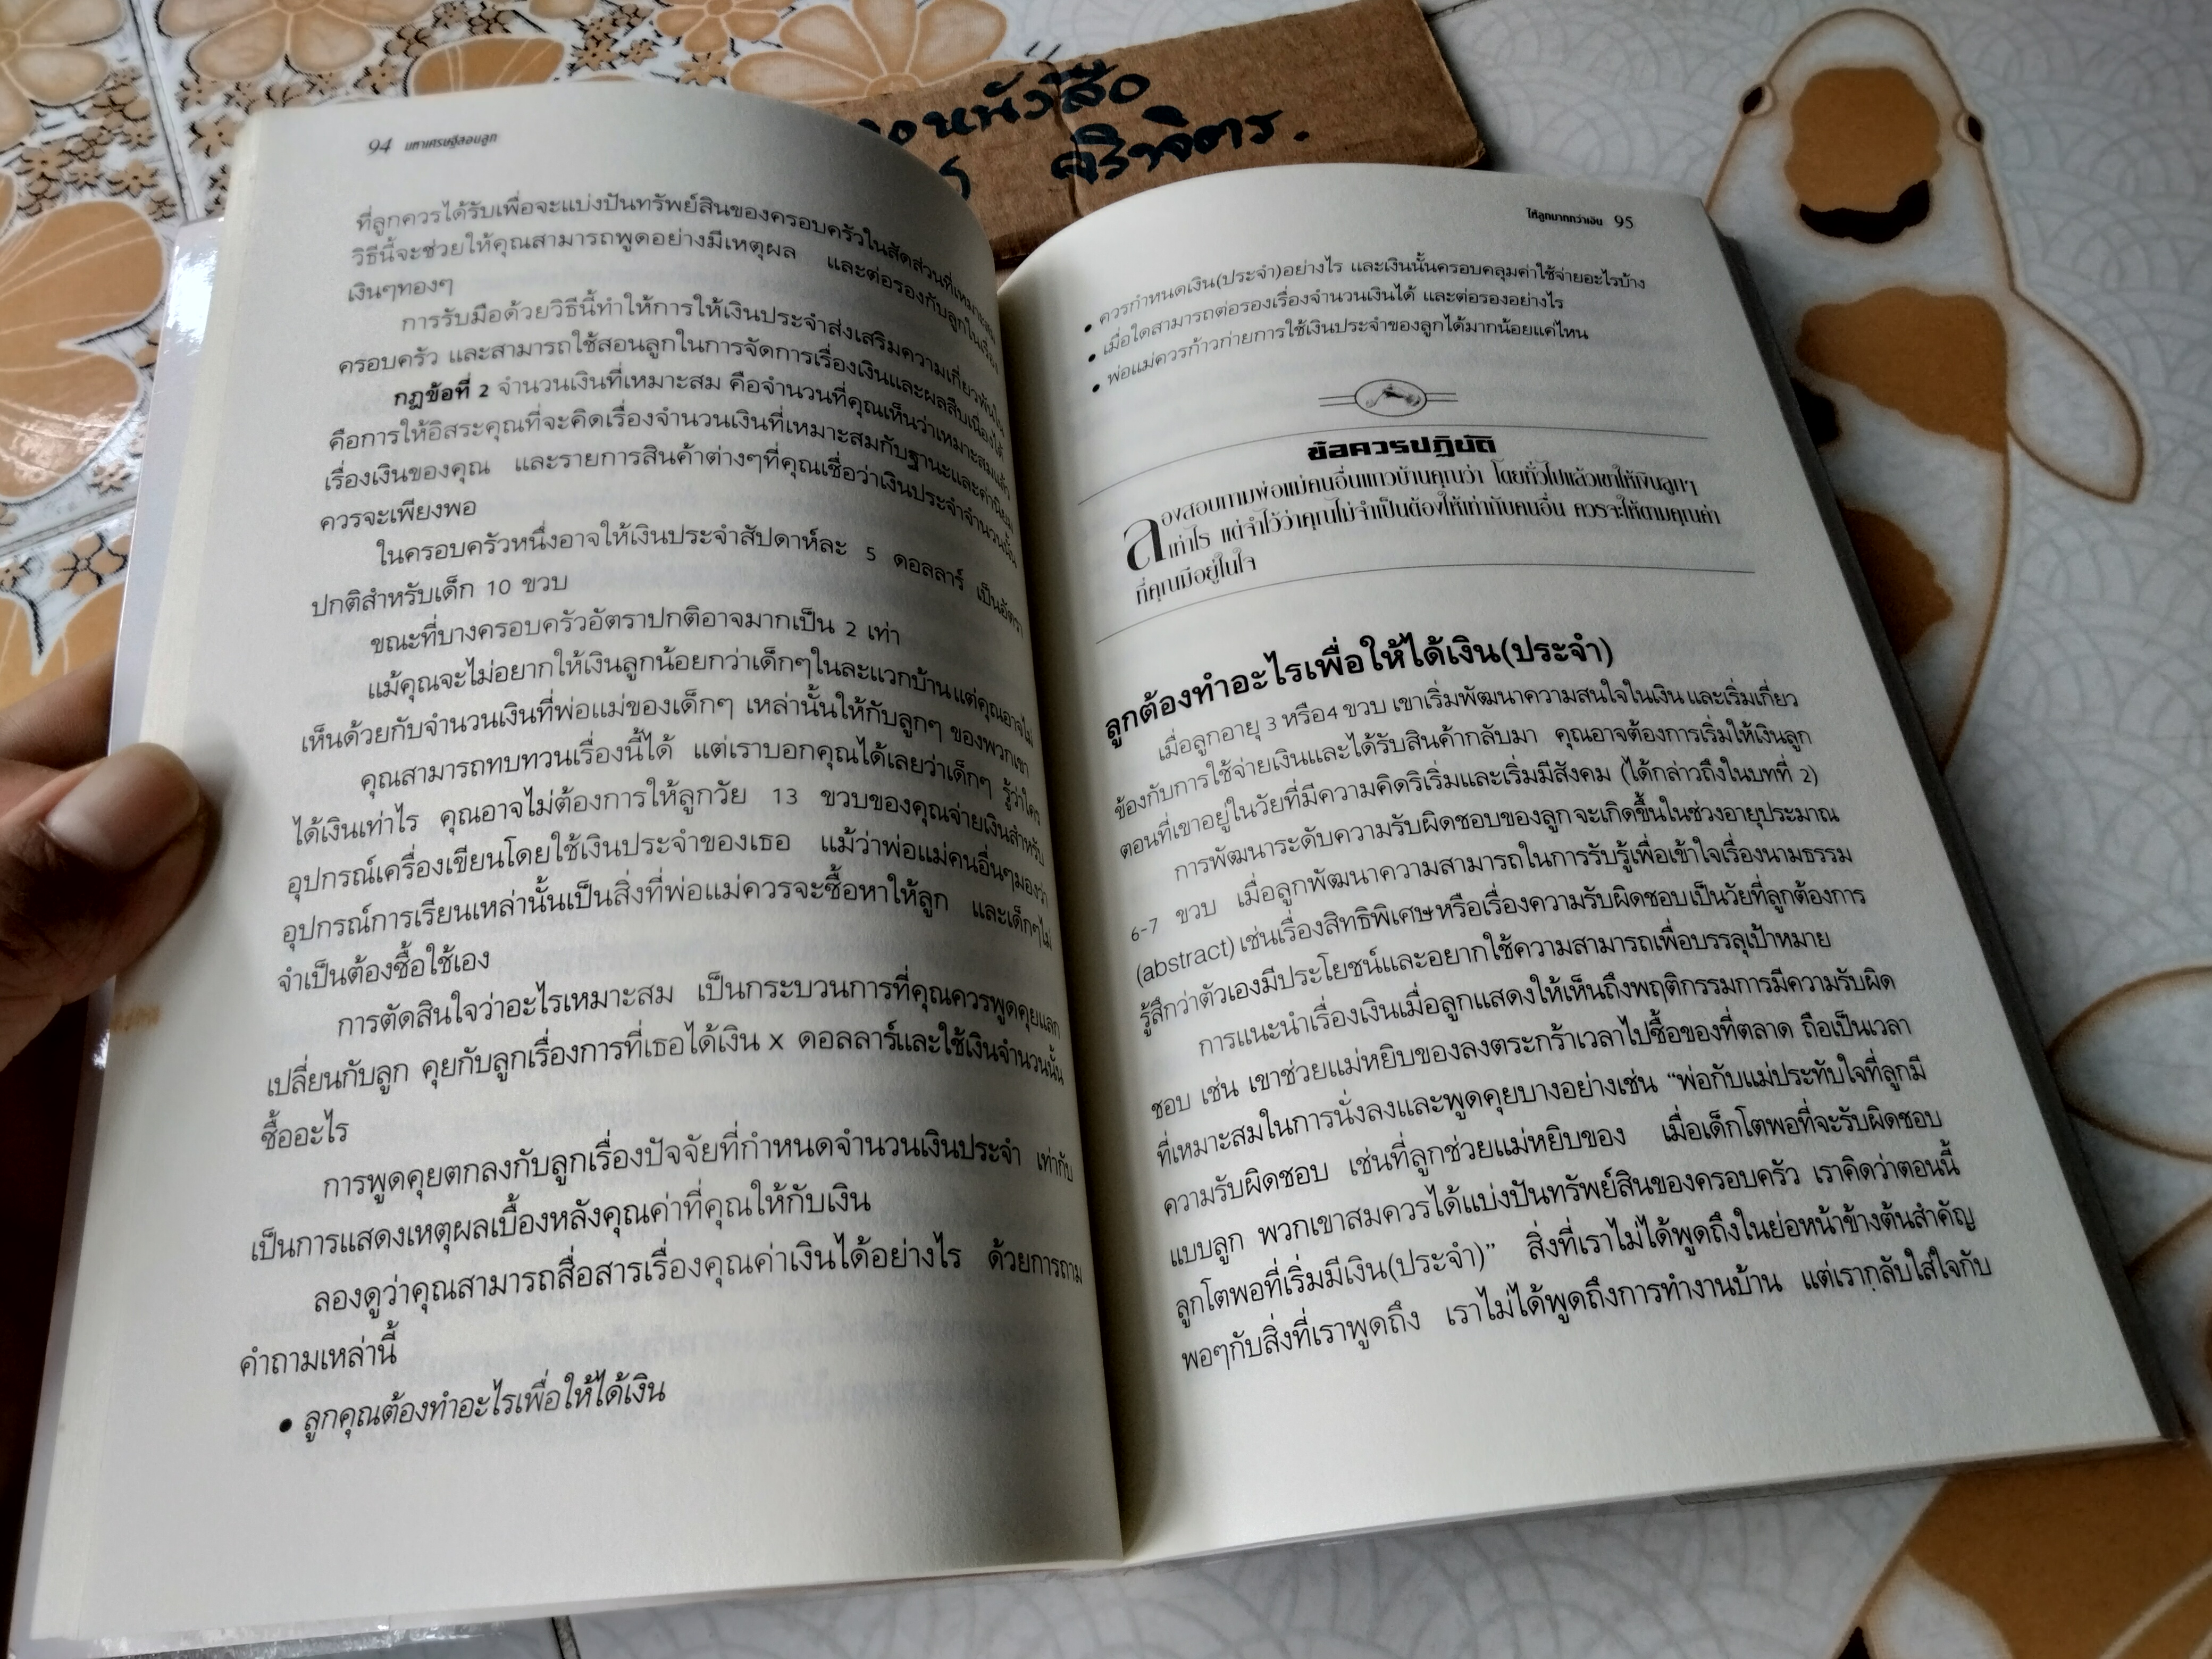 94 มหาเศรษฐีสอนลูก
ที่ลูกควรได้รับเพื่อจะแบ่งปันทรัพย์สินของครอบครัวในสัดส่วนที่เหมาะสม
วิธีนี้จะช่วยให้คุณสามารถพูดอย่างมีเหตุผล และต่อรองกับลูกในเรื่อง
เงินๆทองๆ
การรับมือด้วยวิธีนี้ทำให้การให้เงินประจำส่งเสริมความเกี่ยวพันใน
ครอบครัว และสามารถใช้สอนลูกในการจัดการเรื่องเงินและผลสืบเนื่องได้
กฎข้อที่ 2 จำนวนเงินที่เหมาะสม คือจำนวนที่คุณเห็นว่าเหมาะสมแล้ว
คือการให้อิสระคุณที่จะคิดเรื่องจำนวนเงินที่เหมาะสมกับฐานะและค่านิยม
เรื่องเงินของคุณ และรายการสินค้าต่างๆที่คุณเชื่อว่าเงินประจำจำนวนนั้น
ควรจะเพียงพอ
ในครอบครัวหนึ่งอาจให้เงินประจำสัปดาห์ละ 5 ดอลลาร์ เป็นอัตรา
ปกติสำหรับเด็ก 10 ขวบ
ขณะที่บางครอบครัวอัตราปกติอาจมากเป็น 2 เท่า
แม้คุณจะไม่อยากให้เงินลูกน้อยกว่าเด็กๆในละแวกบ้าน แต่คุณอาจไม่
เห็นด้วยกับจำนวนเงินที่พ่อแม่ของเด็กๆ เหล่านั้นให้กับลูกๆ ของพวกเขา
คุณสามารถทบทวนเรื่องนี้ได้ แต่เราบอกคุณได้เลยว่าเด็กๆ รู้ว่าใคร
ได้เงินเท่าไร คุณอาจไม่ต้องการให้ลูกวัย 13 ขวบของคุณจ่ายเงินสำหรับ
อุปกรณ์เครื่องเขียนโดยใช้เงินประจำของเธอ แม้ว่าพ่อแม่คนอื่นๆมองว่า
อุปกรณ์การเรียนเหล่านั้นเป็นสิ่งที่พ่อแม่ควรจะซื้อหาให้ลูก และเด็กๆไม่
จำเป็นต้องซื้อใช้เอง
การตัดสินใจว่าอะไรเหมาะสม เป็นกระบวนการที่คุณควรพูดคุยแลก
เปลี่ยนกับลูก คุยกับลูกเรื่องการที่เธอได้เงิน x ดอลลาร์และใช้เงินจำนวนนั้น
ซื้ออะไร
การพูดคุยตกลงกับลูกเรื่องปัจจัยที่กำหนดจำนวนเงินประจำ เท่ากับ
เป็นการแสดงเหตุผลเบื้องหลังคุณค่าที่คุณให้กับเงิน
ลองดูว่าคุณสามารถสื่อสารเรื่องคุณค่าเงินได้อย่างไร ด้วยการถาม
คำถามเหล่านี้
• ลูกคุณต้องทำอะไรเพื่อให้ได้เงิน
อหนังสือ
จริวจิตร.
ให้ลูกมากกว่าเงิน 95
• ควรกำหนดเงิน(ประจำ)อย่างไร และเงินนั้นครอบคลุมค่าใช้จ่ายอะไรบ้าง
• เมื่อใดสามารถต่อรองเรื่องจำนวนเงินได้ และต่อรองอย่างไร
• พ่อแม่ควรก้าวก่ายการใช้เงินประจำของลูกได้มากน้อยแค่ไหน
ข้อควรปฏิบัติ
ลองสอบถามพ่อแม่คนอื่นแถวบ้านคุณว่า โดยทั่วไปแล้วเขาให้เงินลูกๆ
เท่าไร แต่จำไว้ว่าคุณไม่จำเป็นต้องให้เท่ากับคนอื่น ควรจะให้ตามคุณค่า
ที่คุณมีอยู่ในใจ
ลูกต้องทำอะไรเพื่อให้ได้เงิน(ประจำ)
เมื่อลูกอายุ 3 หรือ4 ขวบ เขาเริ่มพัฒนาความสนใจในเงิน และเริ่มเกี่ยว
ข้องกับการใช้จ่ายเงินและได้รับสินค้ากลับมา คุณอาจต้องการเริ่มให้เงินลูก
ตอนที่เขาอยู่ในวัยที่มีความคิดริเริ่มและเริ่มมีสังคม (ได้กล่าวถึงในบทที่ 2)
การพัฒนาระดับความรับผิดชอบของลูก จะเกิดขึ้นในช่วงอายุประมาณ
6-7 ขวบ เมื่อลูกพัฒนาความสามารถในการรับรู้เพื่อเข้าใจเรื่องนามธรรม
(abstract) เช่นเรื่องสิทธิพิเศษหรือเรื่องความรับผิดชอบ เป็นวัยที่ลูกต้องการ
รู้สึกว่าตัวเองมีประโยชน์และอยากใช้ความสามารถเพื่อบรรลุเป้าหมาย
การแนะนำเรื่องเงินเมื่อลูกแสดงให้เห็นถึงพฤติกรรมการมีความรับผิด
ชอบ เช่น เขาช่วยแม่หยิบของลงตระกร้าเวลาไปซื้อของที่ตลาด ถือเป็นเวลา
ที่เหมาะสมในการนั่งลงและพูดคุยบางอย่างเช่น “พ่อกับแม่ประทับใจที่ลูกมี
ความรับผิดชอบ เช่นที่ลูกช่วยแม่หยิบของ เมื่อเด็กโตพอที่จะรับผิดชอบ
แบบลูก พวกเขาสมควรได้แบ่งปันทรัพย์สินของครอบครัว เราคิดว่าตอนนี้
ลูกโตพอที่เริ่มมีเงิน(ประจำ)” สิ่งที่เราไม่ได้พูดถึงในย่อหน้าข้างต้นสำคัญ
พอๆกับสิ่งที่เราพูดถึง เราไม่ได้พูดถึงการทำงานบ้าน แต่เรากลับใส่ใจกับ